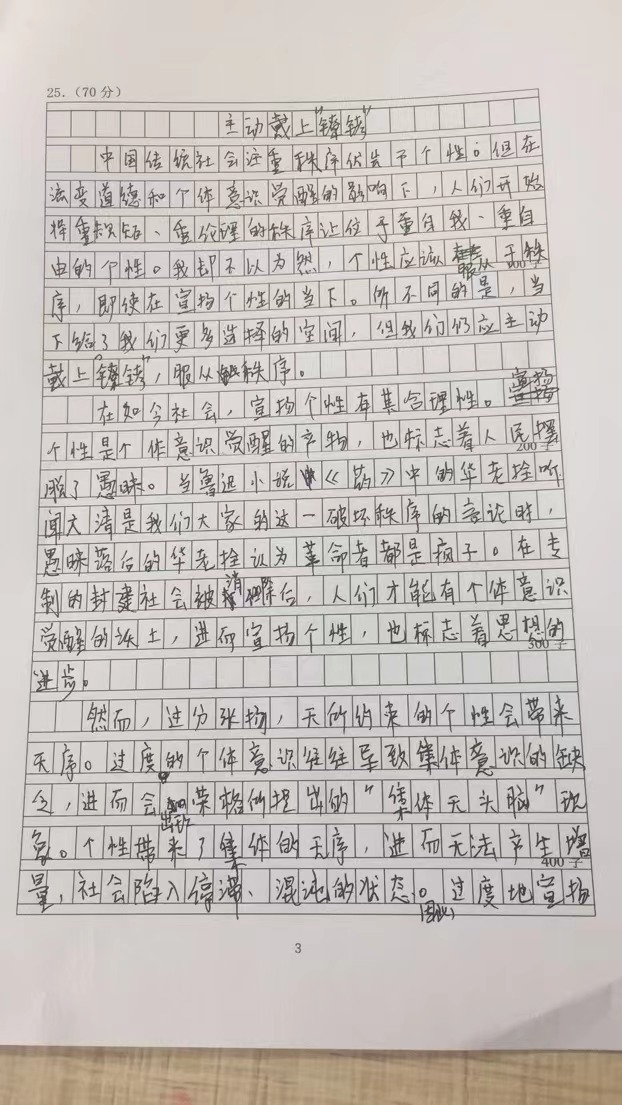 25.（70 分）
主动戴上“镣铐”
中国传统社会注重秩序优先于个性。但在
法度道德和个体意识觉醒的影响下，人们开始
将重规矩、重伦理的秩序让位于重自我、重自
由的个性。我却不以为然，个性应该服从于秩
100字
序，即使在宣扬个性的当下。所不同的是，当
下给了我们更多选择的空间，但我们仍应主动
戴上“镣铐”，服从秩序。
在如今社会，宣扬个性有其合理性。宣扬
个性是个体意识觉醒的产物，也标志着人民摆
200字
脱了愚昧。当鲁迅小说《药》中的华老拴听
闻大清是我们大家的这一破坏秩序的言论时，
愚昧落后的华老拴认为革命者都是疯子。在专
制的封建社会被消除后，人们才能有个体意识
觉醒的沃土，进而宣扬个性，也标志着思想的
300字
进步。
然而，过分张扬，无所约束的个性会带来
无序。过度的个体意识往往导致集体意识的缺
乏，进而会出现荣格所提出的“集体无头脑”现
象。个性带来了集体的无序，进而无法产生增
400字
量，社会陷入停滞、混沌的状态。因此，过度地宣扬
3